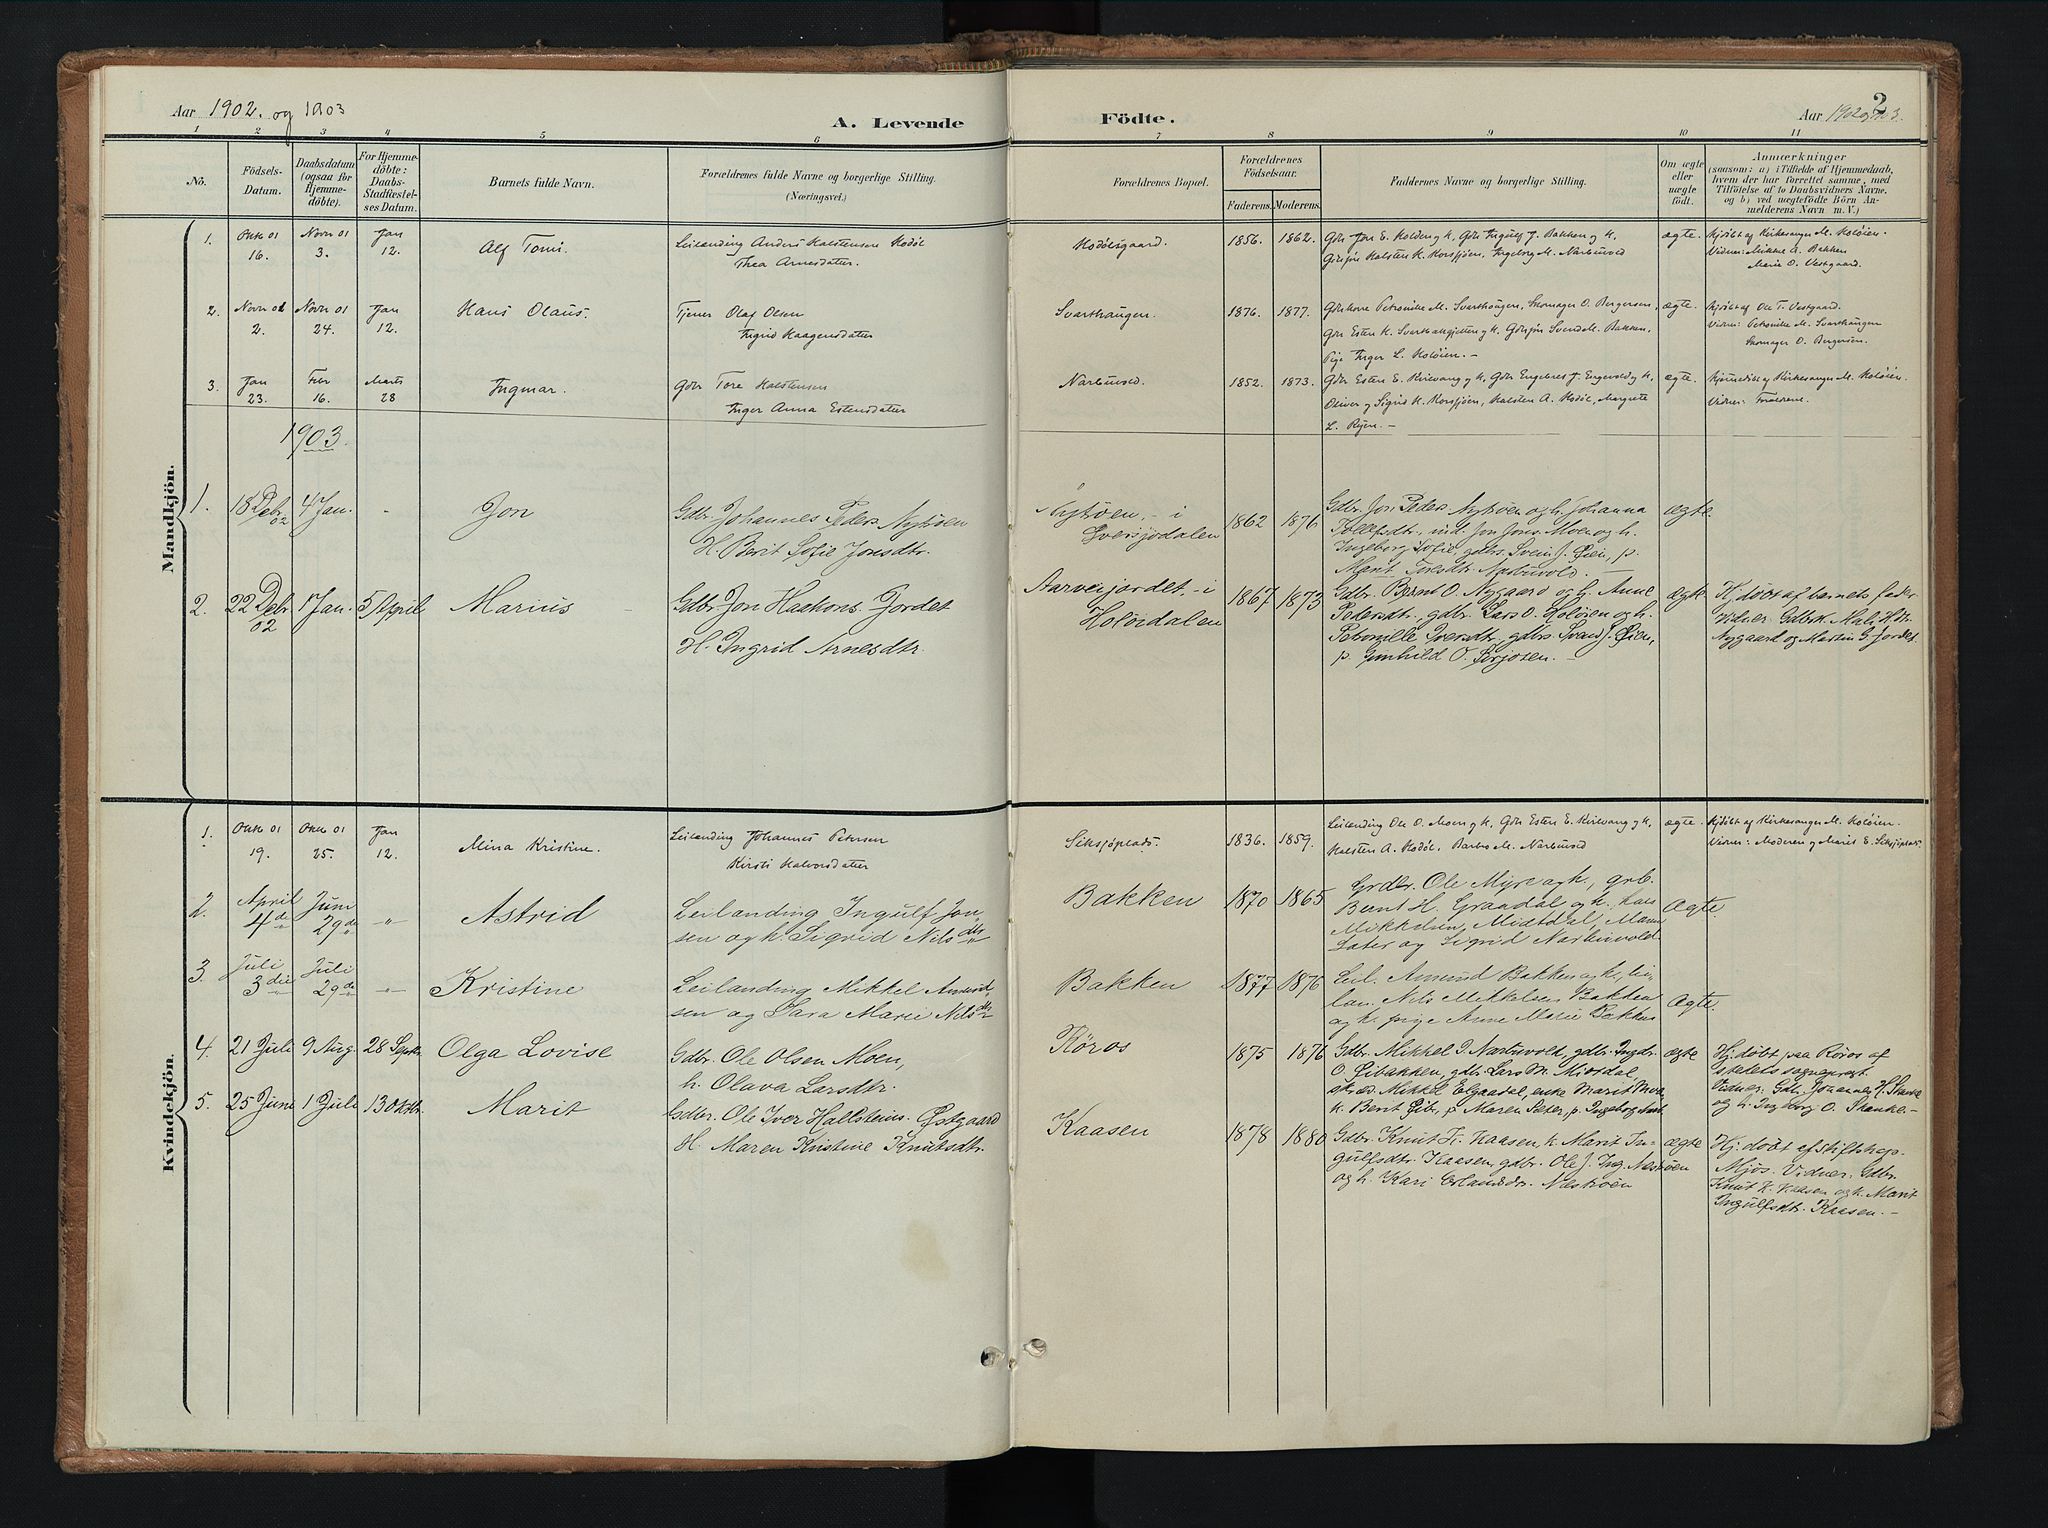 Aar 1902. og 1903
A. Levende
Födte.
2
Aar 1902 og 03.
1 2 3 4 5 6 7 8 9 10 11
Nö.
Födsels-
Datum.
Daabsdatum
(ogsaa for
Hjemme-
döbte).
For Hjemme-
döbte:
Daabs-
Stadfæstel-
ses Datum.
Barnets fulde Navn.
Forældrenes fulde Navne og borgerlige Stilling.
(Næringsvei.)
Forældrenes Bopæl.
Forældrenes
Födselsaar.
Faderens. Moderens.
Faddernes Navne og borgerlige Stilling.
Om ægte
eller
uægte
födt.
Anmærkninger
(saasom: a) i Tilfælde af Hjemmedaab,
hvem der har forrettet samme, med
Tilföielse af to Daabsvidners Navne,
og b) ved uægtefödte Börn An-
melderens Navn m. V.)
Mandkjön.
1.
Oktr 01
16.
Novr 01
3.
Jan
12.
Alf Toni.
Leilending Anders Halstensen Hodöl
Thea Arnesdatter.
Hodölsgaard.
1856. 1862.
Gbr Jon E. Holden og h, Gbr Ingulf J. Bakken og h.
Halsten H. Korssjöen, Ingebrg M. Narbuvold
ægte.
Hjdöbt af Kirkesanger M. Holöien.
Vidner: Mikkel A. Bakken
Marie O. Vestgaard.
2.
Novr 01
2.
Novr 01
24.
Jan
12.
Hans Olaus.
Tjener Olaf Olsen
Ingrid Haagensdatter
Svarthaugen.
1876. 1877.
Petronille M. Svarthaugen, Skomager O. Bergersen,
Gbr Esten K. og h, Svend M. Bakken,
Pige Inger L. Holöien. -
ægte.
Hjdöbt af Ole T. Vestgaard.
Vidner: Petronille M. Svarthaugen
Skomager O. Bergersen.
3.
Jan
23.
Febr
16.
Marts
28
Ingmar.
Gbr Tore Halstensen
Inger Anna Estensdatter
Narbuvold.
1852. 1873.
Gbr Esten E. Kirkvang og h, Gbr Engebret J. Engevold og h,
Oliver og Sigrid H. Korssjöen, Halsten A. Hodöl, Margrete
L. Ryen. -
ægte.
Hjemmedöbt af Kirkesanger M. Holöien.
Vidner: Forældrene.
1903.
1.
18 Debr 02
4 Jan.
-
Jon
Gdbr. Johannes Peders. Nytröen
H. Berit Sofie Jonsdtr.
Nytröen, - i
Sversjödalen
1862 1876
Gdbr. Jon Peders Nytröen og h. Johanna
Tollefsdtr., ind. Jon Jons. Moen og h.
Ingeborg Sofie, gdbrs. Svein J. Öien, p.
Marit Toresdtr. Narbuvold. -
ægte.
2.
22 Debr 02
1 Jan.
5 April
Marius
Gdbr. Jon Haakons. Jordet
H. Ingrid Arnesdtr.
Aarveijordet, - i
Holöidalen
1867 1873
Gdbr. Bernt O. Nygaard og h. Anne
Pedersdtr., gdbr. Lars O. Holöien og h.
Petronelle Iversdtr., gdbrs. Svend J. Öien,
p. Gunhild O. Örjosen. -
ægte
Hj. döbt af barnets fader
Vidner: Gdbrk. Mali H.dtr.
Nygaard og Martin G. Jordet
Kvindekjön.
1.
Oktr 01
19.
Oktr 01
25.
Jan
12.
Mina Kristine.
Leilending Johannes Petersen
Kirsti Halvorsdatter
Siksjöplads.
1836. 1859.
Leilending Ole O. Moen og h, Gbr Esten E. Kirkvang og h,
Halsten A. Hodöl, Barbro M. Narbuvold
ægte.
Hjdöbt af Kirkesanger M. Holöien.
Vidner: Moderen og Marit E. Siksjöplads.
2.
April
4de
Juni
29de
"
Astrid
Leilanding Ingulf Jon,
sen og h. Sigrid Nilsdtr
Bakken
1870 1865
Grdbr. Ole Myre og h., grb.
Bernt H. Graadal og h., Lars
Mikkelsen Midtdal, Maren
Sæter og Sigrid Narbuvold.
Ægte
3.
Juli
3die
Juli
29de
"
Kristine
Leilanding Mikkel Amund,
sen og Sara Marie Nilsdtr
Bakken
1877 1876
Leil. Amund Bakken og h., lei,
lan. Nils Mikkelsen Bakken
og h., pige Anne Marie Bakken
Ægte.
4.
21 Juli
9 Aug.
28 Septr.
Olga Lovise
Gdbr. Ole Olsen Moen,
h. Olava Larsdtr.
Röros
1875 1876
Gdbr. Mikkel P. Narbuvold, gdbr. Ingbr.
O. Öibakken, gdbr. Lars M. Miördal,
Mikkel Elgaadal, enke Marit Moe,
k. Berit Öibr, p. Maren Sæter, p. Ingeborg
ægte
Hj. döbt paa Röros af
stedets sogneprest
Vidner: Gdbr. Johannes H. Stenke
og h. Ingeborg O. Stenke. -
5.
25 Juni
1 Juli
13 Oktbr.
Marit
Gdbr. Ole Iver Hallsteins. Östgaard
H. Maren Kristine Knutsdtr.
Kaasen
1878 1880
Gdbr. Knut K. Kaasen h. Marit In-
gulfsdtr. Kaasen, gdbr. Ole J. Ing. Næströen
og h. Kari Erlandsdr. Næströen
ægte
Hj. döbt af stiftskap.
Mjös. Vidner: Gdbr.
Knut K. Kaasen og h. Marit
Ingulfsdtr. Kaasen. -